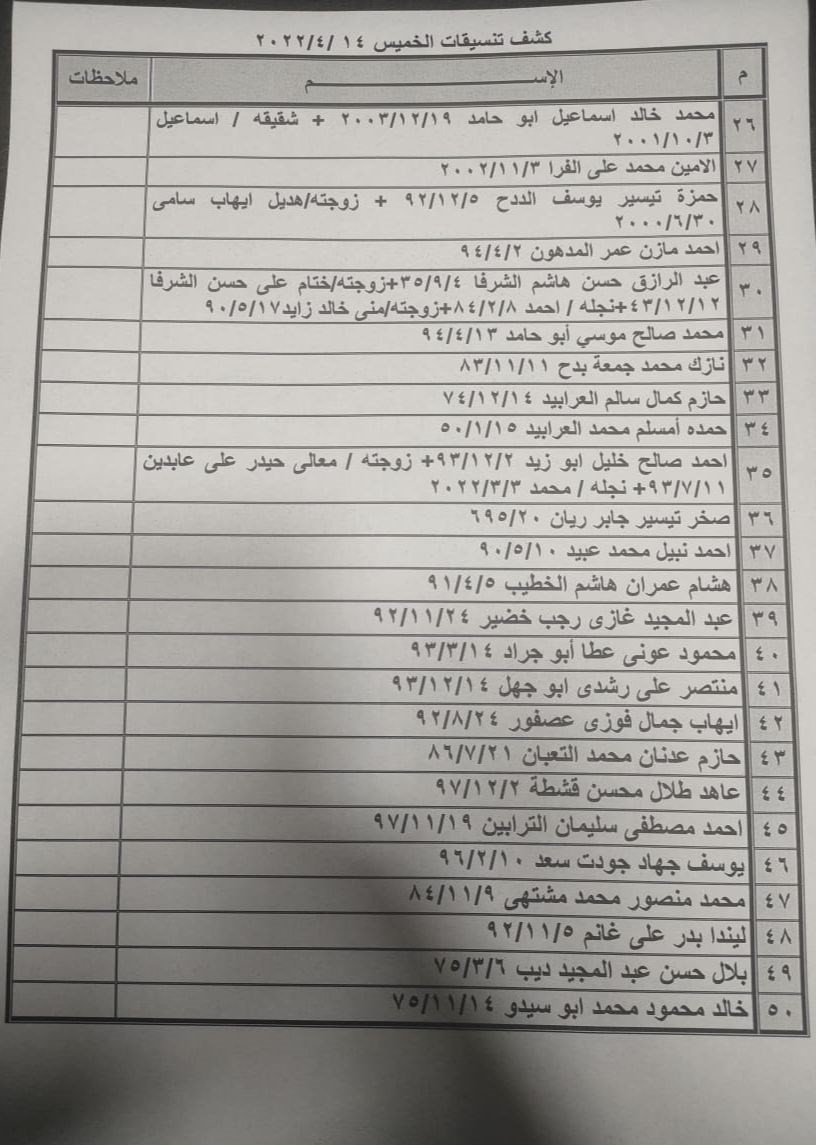 كشف تنسيقات الخميس ١٤ /٢٠٢٢/٤
م الإســـــــم ملاحظات
٢٦ محمد خالد اسماعيل ابو حامد ٢٠٠٣/١٢/١٩ + شقيقه / اسماعيل
٢٠٠١/١٠/٣
٢٧ الامين محمد على الفرا ٢٠٠٢/١١/٣
٢٨ حمزة تيسير يوسف الددح ٩٢/١٢/٥ + زوجته/هديل ايهاب سامى
٢٠٠٠/٦/٣٠
٢٩ احمد مازن عمر المدهون ٩٤/٤/٢
٣٠ عبد الرازق حسن هاشم الشرفا ٣٥/٩/٤+زوجته/ختام على حسن الشرفا
٤٣/١٢/١٢+نجله / احمد ٨٤/٢/٨+زوجته/منى خالد زايد٩٠/٥/١٧
٣١ محمد صالح موسي أبو حامد ٩٤/٤/١٣
٣٢ نازك محمد جمعة بدح ٨٣/١١/١١
٣٣ حازم كمال سالم العرابيد ٧٤/١٢/١٤
٣٤ حمده أمسلم محمد العرابيد ٥٠/١/١٥
٣٥ احمد صالح خليل ابو زيد ٩٣/١٢/٢+ زوجته / معالى حيدر على عابدين
٩٣/٧/١١+ نجله / محمد ٢٠٢٢/٣/٣
٣٦ صخر تيسير جابر ريان ٦٩٥/٢٠
٣٧ احمد نبيل محمد عبيد ٩٠/٥/١٠
٣٨ هشام عمران هاشم الخطيب ٩١/٤/٥
٣٩ عبد المجيد غازى رجب خضير ٩٢/١١/٢٤
٤٠ محمود عونى عطا أبو جراد ٩٣/٣/١٤
٤١ منتصر على رشدى ابو جهل ٩٣/١٢/١٤
٤٢ ايهاب جمال فوزى عصفور ٩٢/٨/٢٤
٤٣ حازم عدنان محمد التعبان ٨٦/٧/٢١
٤٤ عاهد طلال محسن قشطة ٩٧/١٢/٢
٤٥ احمد مصطفى سليمان الترابين ٩٧/١١/١٩
٤٦ يوسف جهاد جودت سعد ٩٦/٢/١٠
٤٧ محمد منصور محمد مشتهى ٨٤/١١/٩
٤٨ ليندا بدر على غانم ٩٢/١١/٥
٤٩ بلال حسن عبد المجيد ديب ٧٥/٣/٦
٥٠ خالد محمود محمد ابو سيدو ٧٥/١١/١٤